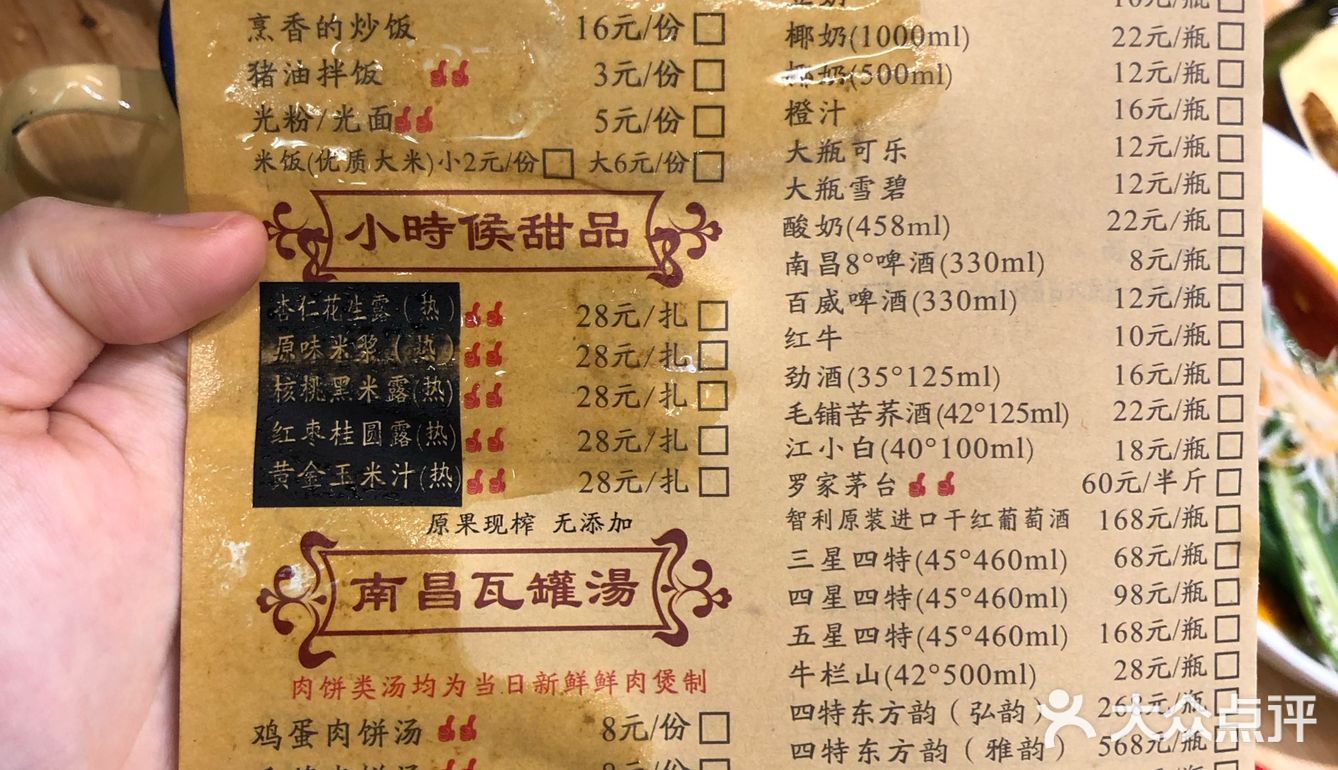 烹香的炒饭 16元/份
猪油拌饭 3元/份
光粉/光面 5元/份
米饭(优质大米)小2元/份 大6元/份
小時候甜品
杏仁花生露(热) 28元/扎
原味米浆(热) 28元/扎
核桃黑米露(热) 28元/扎
红枣桂圆露(热) 28元/扎
黄金玉米汁(热) 28元/扎
原果现榨 无添加
南昌瓦罐湯
肉饼类汤均为当日新鲜鲜肉煲制
鸡蛋肉饼汤 8元/份
椰奶(1000ml) 22元/瓶
椰奶(500ml) 12元/瓶
橙汁 16元/瓶
大瓶可乐 12元/瓶
大瓶雪碧 12元/瓶
酸奶(458ml) 22元/瓶
南昌8°啤酒(330ml) 8元/瓶
百威啤酒(330ml) 12元/瓶
红牛 10元/瓶
劲酒(35°125ml) 16元/瓶
毛铺苦荞酒(42°125ml) 22元/瓶
江小白(40°100ml) 18元/瓶
罗家茅台 60元/半斤
智利原装进口干红葡萄酒 168元/瓶
三星四特(45°460ml) 68元/瓶
四星四特(45°460ml) 98元/瓶
五星四特(45°460ml) 168元/瓶
牛栏山(42°500ml) 28元/瓶
四特东方韵(弘韵) 268元/瓶
四特东方韵(雅韵) 568元/瓶
大众点评